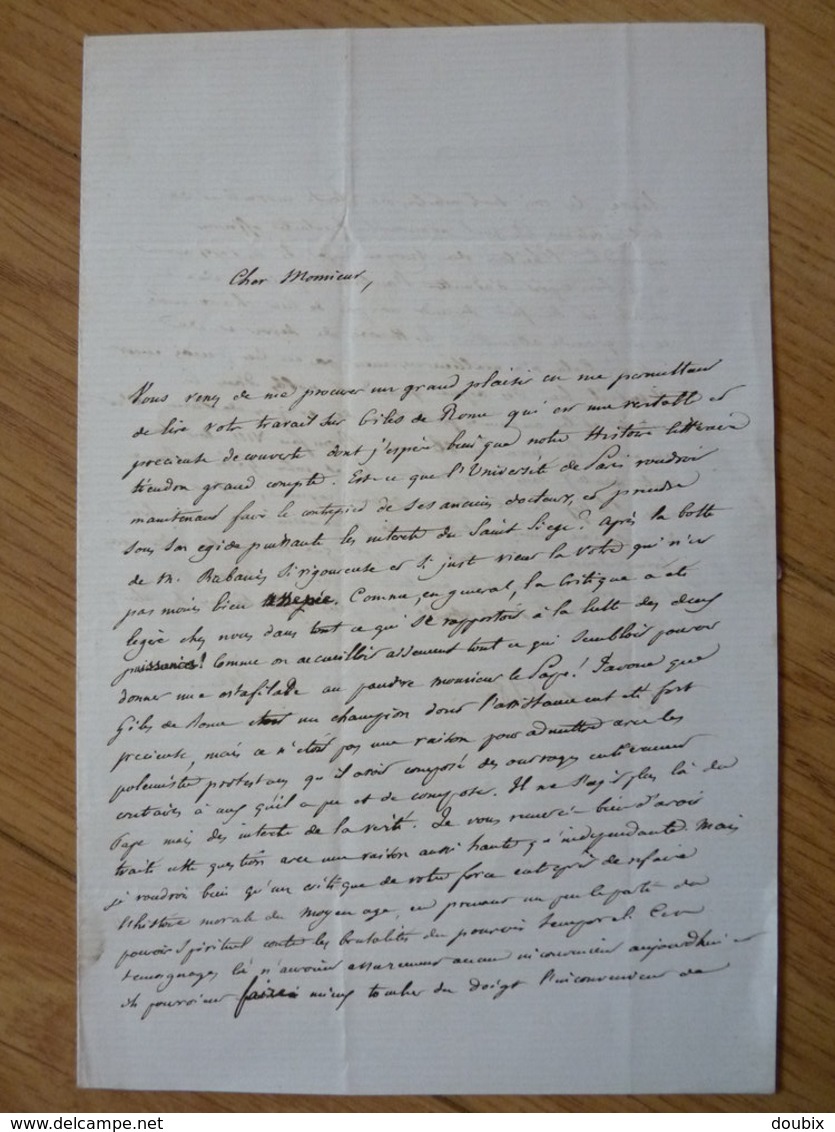 Cher Monsieur,
Vous venez de me procurer un grand plaisir en me permettant
de lire votre travail sur Giles de Rome qui est une veritable et
precieuse decouverte dont j'espère bien que notre Histoire litteraire
tiendra grand compte. Est-ce que l'Université de Paris voudroit
maintenant faire le contrepied de ses anciens docteurs, et prendre
sous son egide puissante les interets du Saint Siege? Après la botte
de M. Rabanis si rigoureuse et si juste vient la votre qui n'est
pas moins bien. Comme, en general, la critique a été
legère chez nous dans tout ce qui se rapportoit à la lutte des deux
puissances! Comme on accueilloit aisement tout ce qui sembloit pouvoir
donner une estafilade au pauvre monsieur le Pape! J'avoue que
Giles de Rome etoit un champion dont l'assistance eut été fort
precieuse, mais ce n'étoit pas une raison pour admettre avec les
polemistes protestans qu'il avoit composé des ouvrages entièrement
contraires à ceux qu'il a pu et dû composer. Il ne s'agit plus là du
Pape mais des interets de la verité. Je vous remercie bien d'avoir
traité cette question avec une raison aussi haute qu'independante. Mais
je voudrois bien qu'un critique de votre force entreprit de refaire
l'histoire morale du moyen age, en prenant un peu le parti du
pouvoir spirituel contre les brutalités du pouvoir temporel. Ces
temoignages là n'auroient assurement aucun inconvenient aujourdhui et
ils pourroient faire mieux toucher du doigt l'inconvenient de
www.delcampe.net
doubix